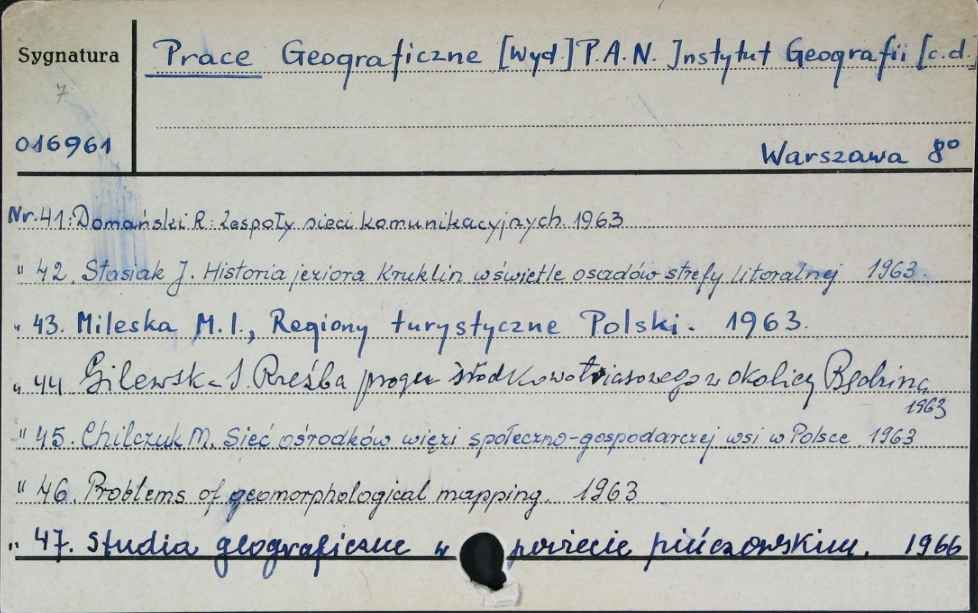 Sygnatura
Prace Geograficzne [Wyd.] P.A.N. Instytut Geografii [c.d.
7
016961
Warszawa 8°
Nr. 41: Domański R: Zespoły sieci komunikacyjnych. 1963
" 42. Stasiak J. Historia jeziora Kruklin w świetle osadów strefy litoralnej 1963.
" 43. Mileska M.I., Regiony turystyczne Polski. 1963.
" 44 Gilewska S. Rzeźba progu środkowotriasowego w okolicy Będzina
1963
" 45. Chilczuk M. Sieć ośrodków więzi społeczno-gospodarczej wsi w Polsce 1963
" 46. Problems of geomorphological mapping. 1963
" 47. Studia geograficzne w powiecie pińczowskim. 1966